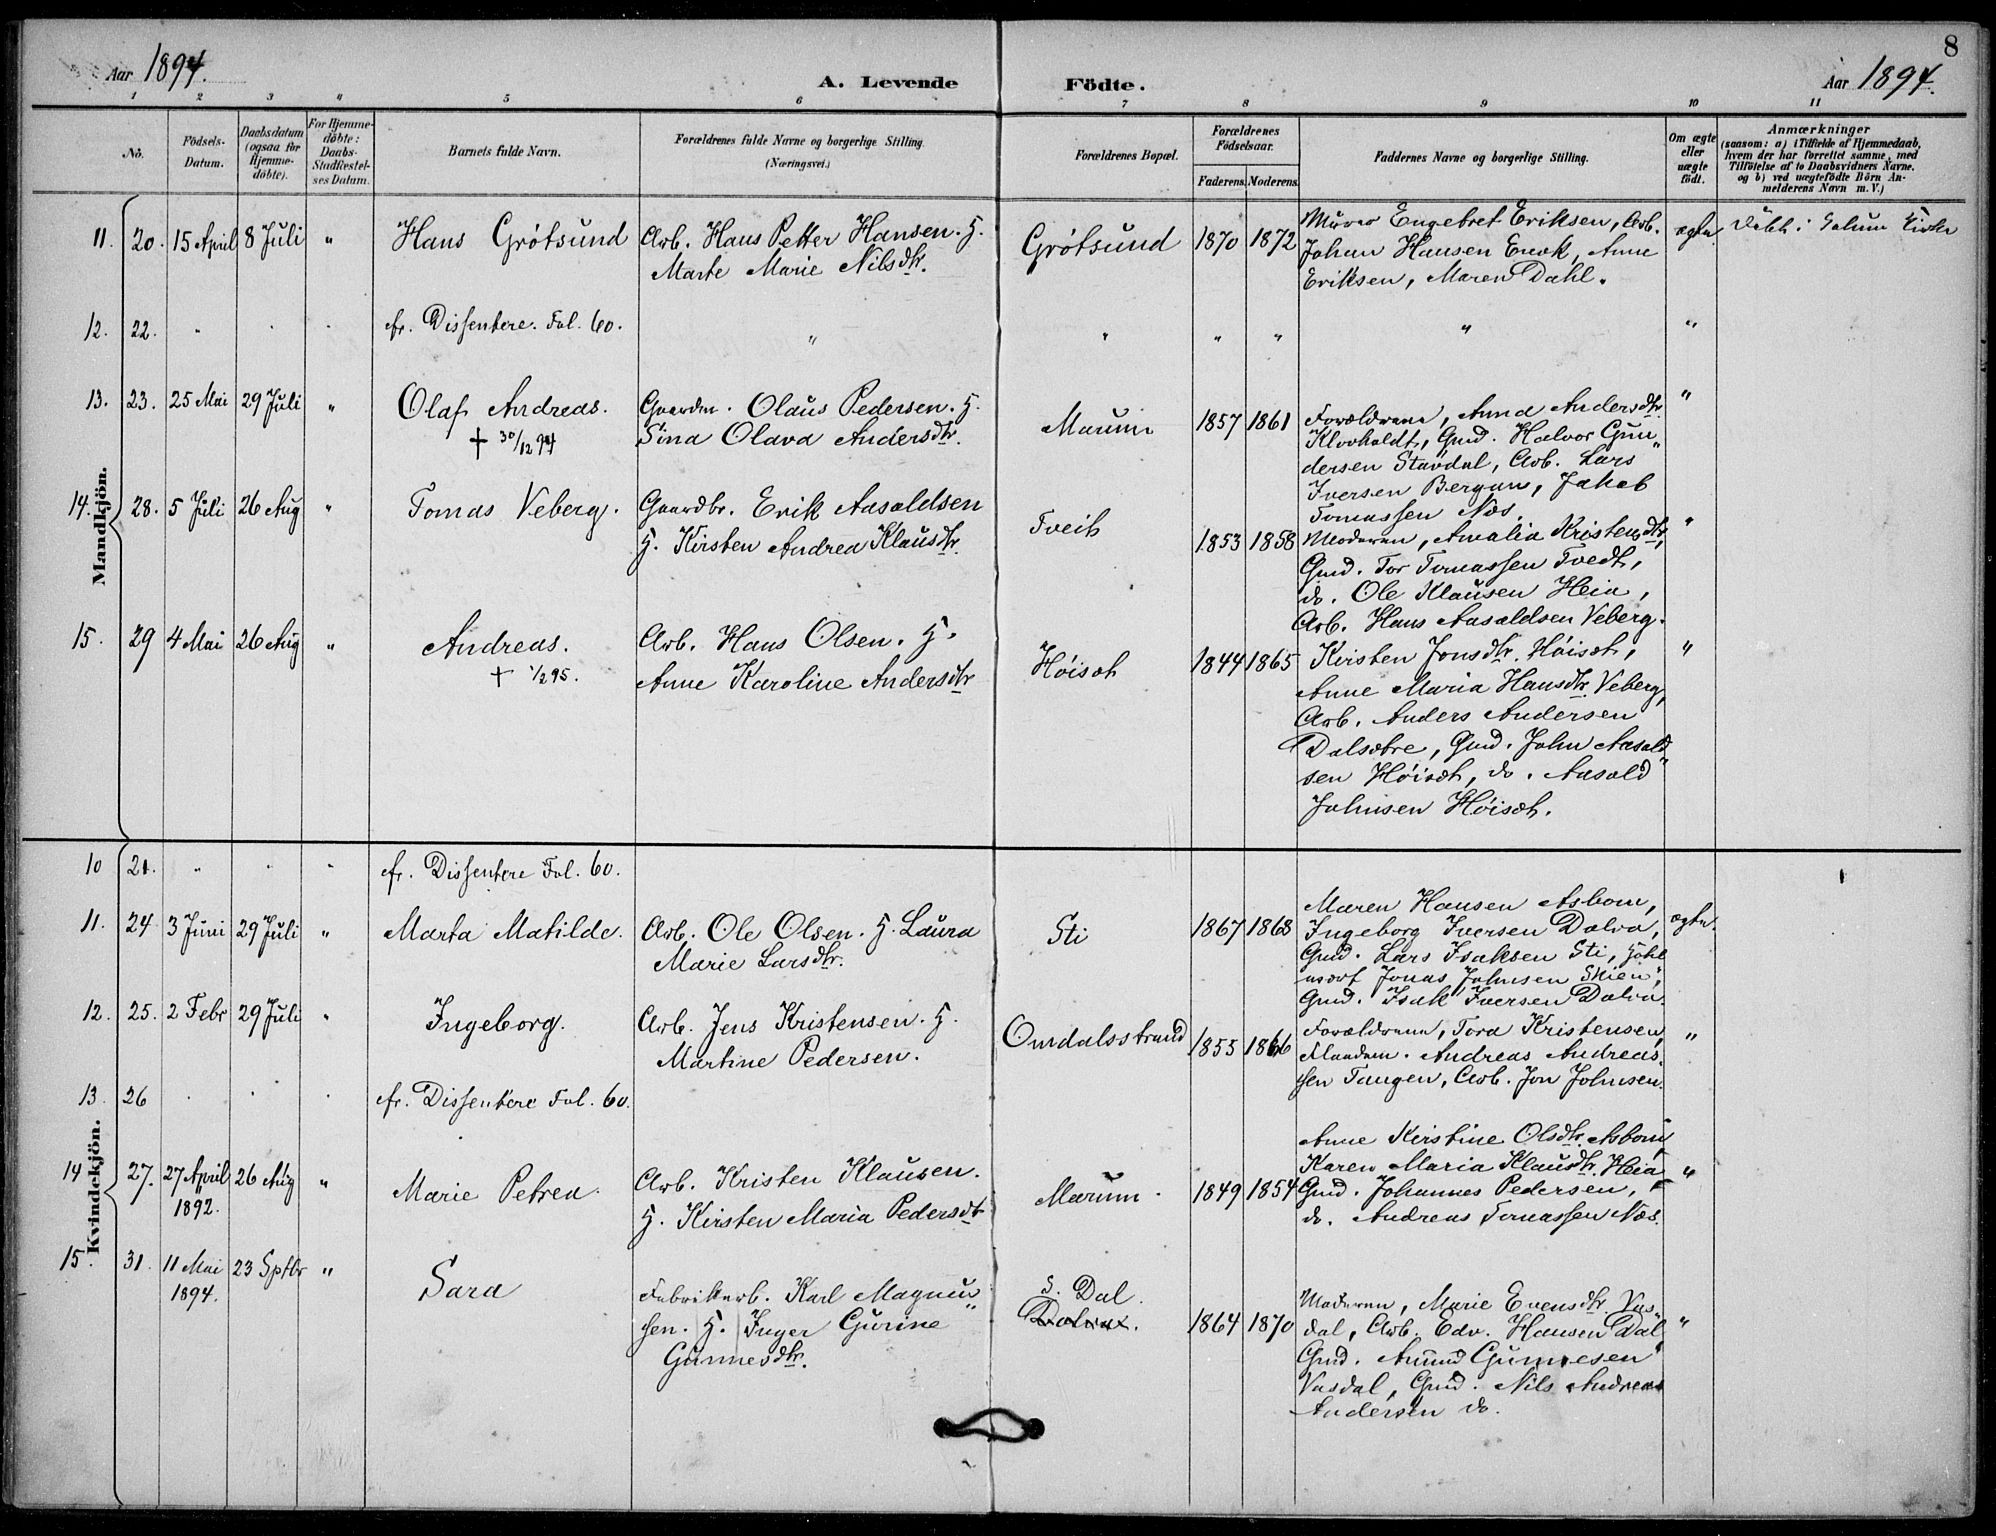 8
Aar 1894.
A. Levende Födte.
Aar 1894.
1 2 3 " 5 6 7 8 9 10 11
No.
Födsels-Datum.
Daabsdatum (ogsaa for Hjemme-döbte).
For Hjemme-döbte: Daabs-Stadfæstel-ses Datum.
Barnets fulde Navn.
Forældrenes fulde Navne og borgerlige Stilling.
(Næringsvei.)
Forældrenes Bopæl.
Forældrenes Födselsaar.
Faderens. Moderens.
Faddernes Navne og borgerlige Stilling.
Om ægte eller uægte födt.
Anmærkninger
(saasom: a) i Tilfælde af Hjemmedaab,
hvem der har forrettet samme, med
Tilföielse af to Daabsvidners Navne,
og b) ved uægtefödte Börn An-
melderens Navn m. V.)
Mandkjön.
11. 20. 15 April 8 Juli " Hans Grötsund Arb. Hans Petter Hansen. H.
Marte Marie Nilsdtr.
Grötsund 1870 1872
Murer Engebret Eriksen, Arb.
Johan Hansen Enok, Anne
Eriksen, Maren Dahl.
ægte. Döbt i Solum Kirke
12. 22. " . . cfr. Dissentere. Fol. 60. " " " " " "
13. 23. 25 Mai 29 Juli " Olaf Andreas. Gaardm. Olaus Pedersen. H.
† 30/12 94 Sina Olava Andersdtr.
Marum 1857 1861
Forældrene, Anna Andersdtr.
Klovholdt, Gmd. Halvor Gun"
dersen Stavdal, Arb. Lars
Iversen Bergan, Jakob
Tomassen Næs.
"
14. 28. 5 Juli 26 Aug " Tomas Veberg. Gaardbr. Erik Aasoldsen
H. Kirsten Andrea Klausdtr.
Tveit 1853 1858
Moderen, Amalia Kristensdtr,
Gmd. Tor Tomassen Tvedt,
do. Ole Klausen Heia,
Arb. Hans Aasoldsen Veberg.
"
15. 29 4 Mai 26 Aug " Andreas. Arb. Hans Olsen. H.
† 1/2 95. Anne Karoline Andersdtr
Höisæt 1844 1865
Kirsten Jonsdtr. Höisæt,
Anne Maria Hansdtr. Veberg,
Arb. Anders Andersen
Dalsætre, Gmd. John Aasold"
sen Höisæt, do. Aasold
Johnsen Höisæt.
"
Kvindekjön.
10 21. " . . cfr. Dissentere Fol. 60.
11. 24 3 Juni 29 Juli " Marta Matilde. Arb. Ole Olsen. H. Laura
Marie Larsdtr.
Sti 1867 1868
Maren Hansen Asbom,
Ingeborg Iversen Dalva,
Gmd. Lars Isaksen Sti,
Jonas Johnsen Skien,
Gmd. Isak Iversen Dalva.
ægte.
12. 25. 2 Febr 29 Juli " Ingeborg. Arb. Jens Kristensen. H.
Martine Pedersen.
Omdalsstrand 1855 1866
Forældrene, Tora Kristensen,
Andreas Andreas"
sen Tangen, Arb. Jon Johnsen.
"
13. 26 . . . cfr. Dissentere Fol. 60.
14 27. 27 April 26 Aug " Marie Petrea. Arb. Kristen Klausen.
1892. H. Kirsten Maria Pedersdtr
Marum. 1849 1854
Anne Kirstine Olsdtr. Asbom,
Karen Maria Klausdtr. Heia
Gmd. Johannes Pedersen,
do. Andreas Tomassen Næs.
"
15. 31. 11 Mai 23 Sptbr " Sara Fabrikarb. Karl Magnus"
1894. sen. H. Inger Gurine
Gunnesdtr.
S. Dal.
1864 1870
Moderen, Marie Evensdtr. Vas"
dal, Arb. Edv. Hansen Dal
Gmd. Amund Gunnesen
Vasdal, Gmd. Nils Andreas
Andersen do.
"